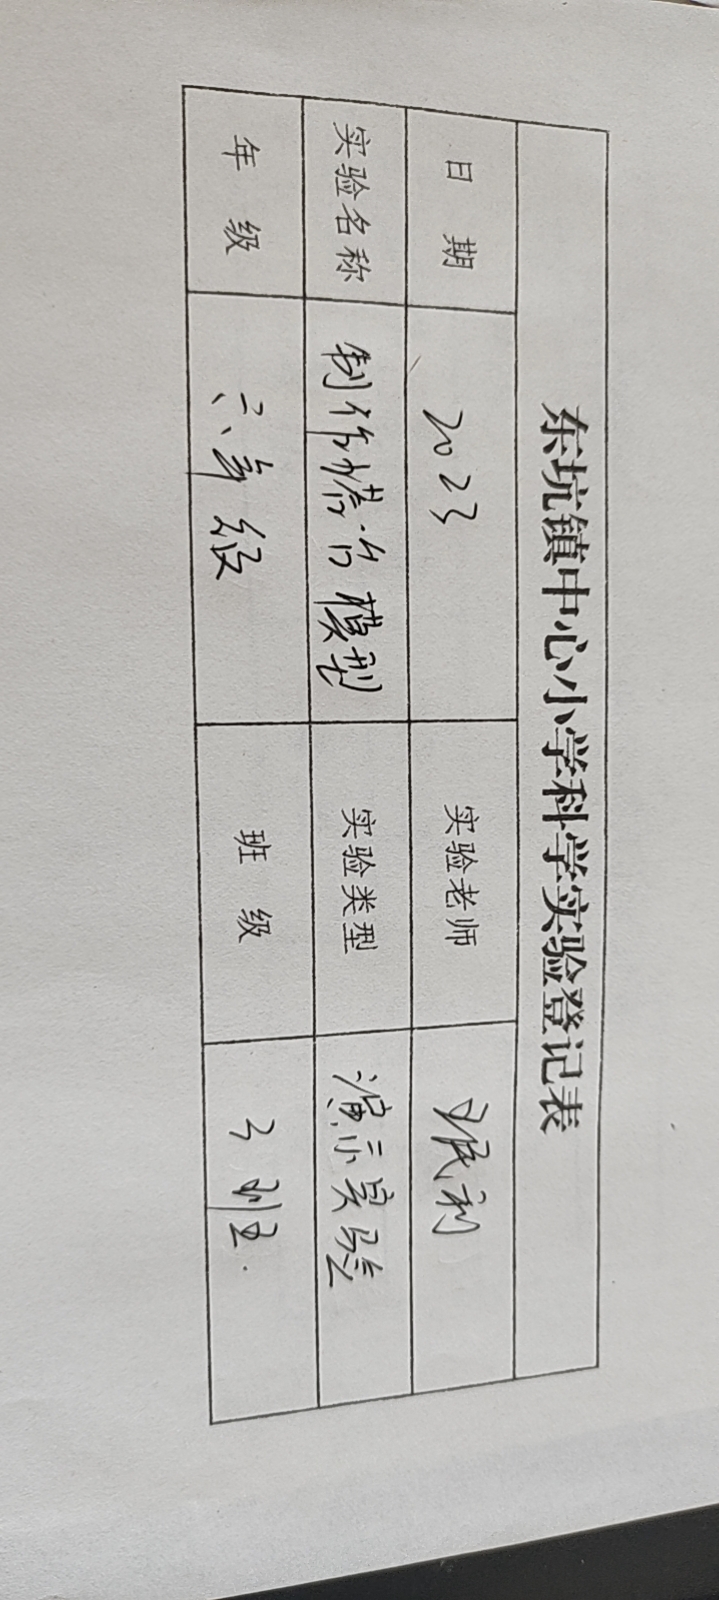 东坑镇中心小学科学实验登记表
日 期 2023 实验老师 张利
实验名称 制作塔台模型 实验类型 演示实验
年 级 六年级 班 级 3班